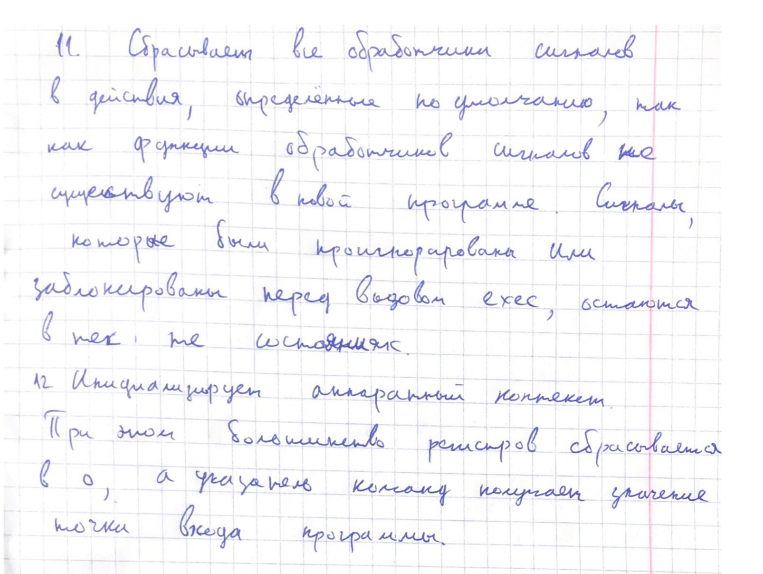 11. Сбрасывает все обработчики сигналов
в действия, определённые по умолчанию, так
как функции обработчиков сигналов не
существуют в новой программе. Сигналы,
которые были проигнорированы или
заблокированы перед вызовом exec, остаются
в тех же состояниях.
12 Инициализирует аппаратный контекст.
При этом большинство регистров сбрасывается
в 0, а указатель команд получает значение
точки входа программы.